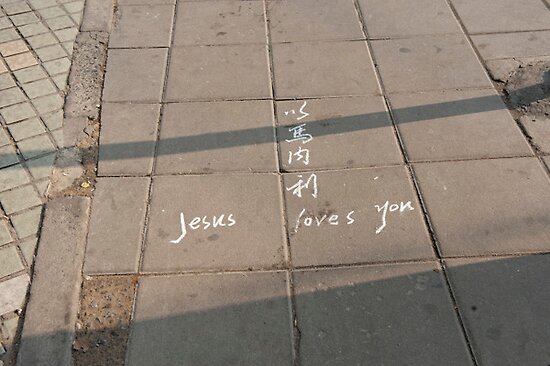 以馬內利
Jesus loves you